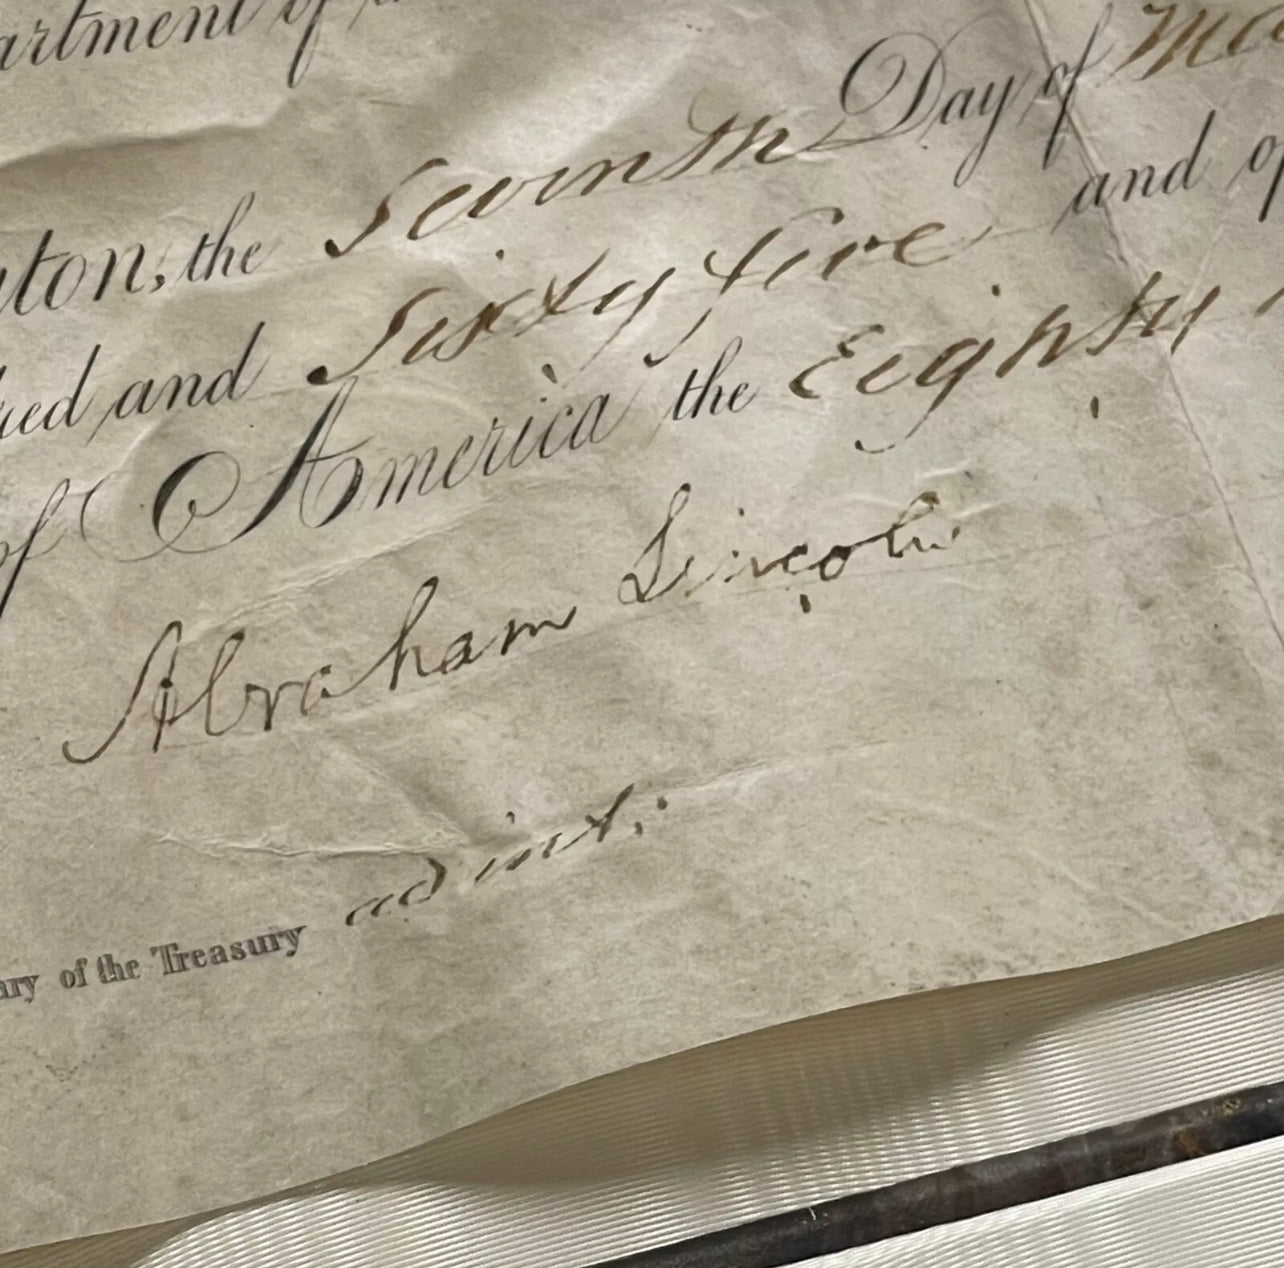 artment of
Day of Ma
ton, the Seventh
and of
red and Sixty five
of America the Eighty
Abraham Lincoln
ad int:
ary of the Treasury